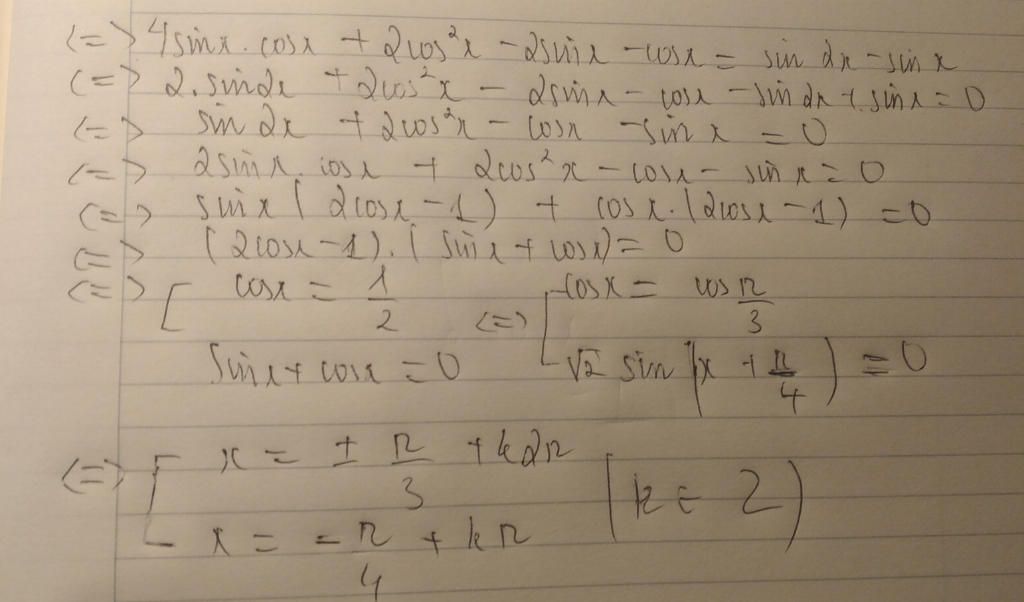 <=> 4sinx.cosx + 2cos²x - 2sinx - cosx = sin 2x - sin x
<=> 2.sin2x + 2cos²x - 2sinx - cosx - sin 2x + sinx = 0
<=> sin 2x + 2cos²x - cosx - sin x = 0
<=> 2sinx.cosx + 2cos²x - cosx - sin x = 0
<=> sinx(2cosx-1) + cosx.(2cosx-1) = 0
<=> (2cosx-1).(sinx+cosx) = 0
<=> [ cosx = 1/2 <=> [ cosx = cos π/3
sinx + cosx = 0 √2 sin (x + π/4) = 0
<=> [ x = ± π/3 + k2π (k ∈ Z)
x = -π/4 + kπ